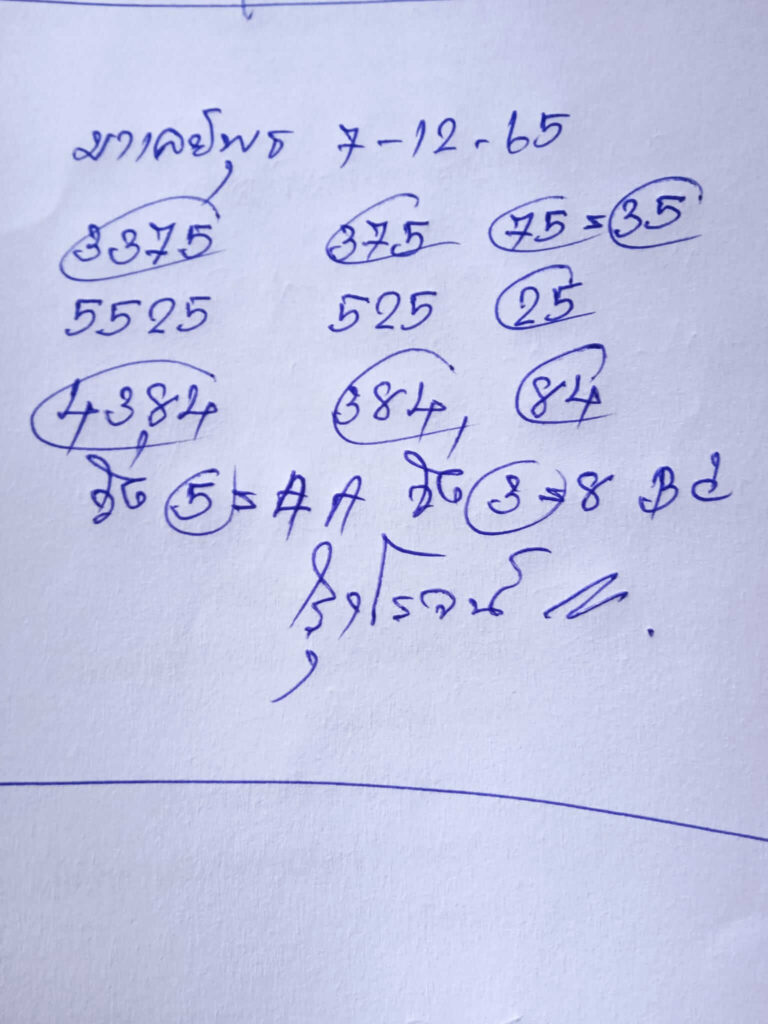 มาเลย์พุธ 7-12-65
3375 375 75=35
5525 525 25
4384 384, 84
วิ่ง 5= A วิ่ง 3=8 B
รุ่งโรจน์